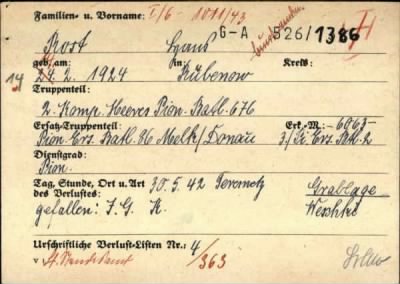 Familien- u. Vorname: I/6 - 1011/43
G-A 526/1386
Rost Hans
geb. am: in: Kreis:
14
24.2.1924 Rübenow
Truppenteil:
2. Komp. Heeres Pion. Batl. 676
Ersatz-Truppenteil: Erk.-M.: -6063-
Pion. Ers. Batl. 86 Melk/Donau 3./Pi Ers. Btl. 2
Dienstgrad:
Pion.
Tag, Stunde, Ort u. Art 30.5.42 Grablage
des Verlustes:
gefallen: I. G. K.
Urschriftliche Verlust-Listen Nr.: 4
v /363